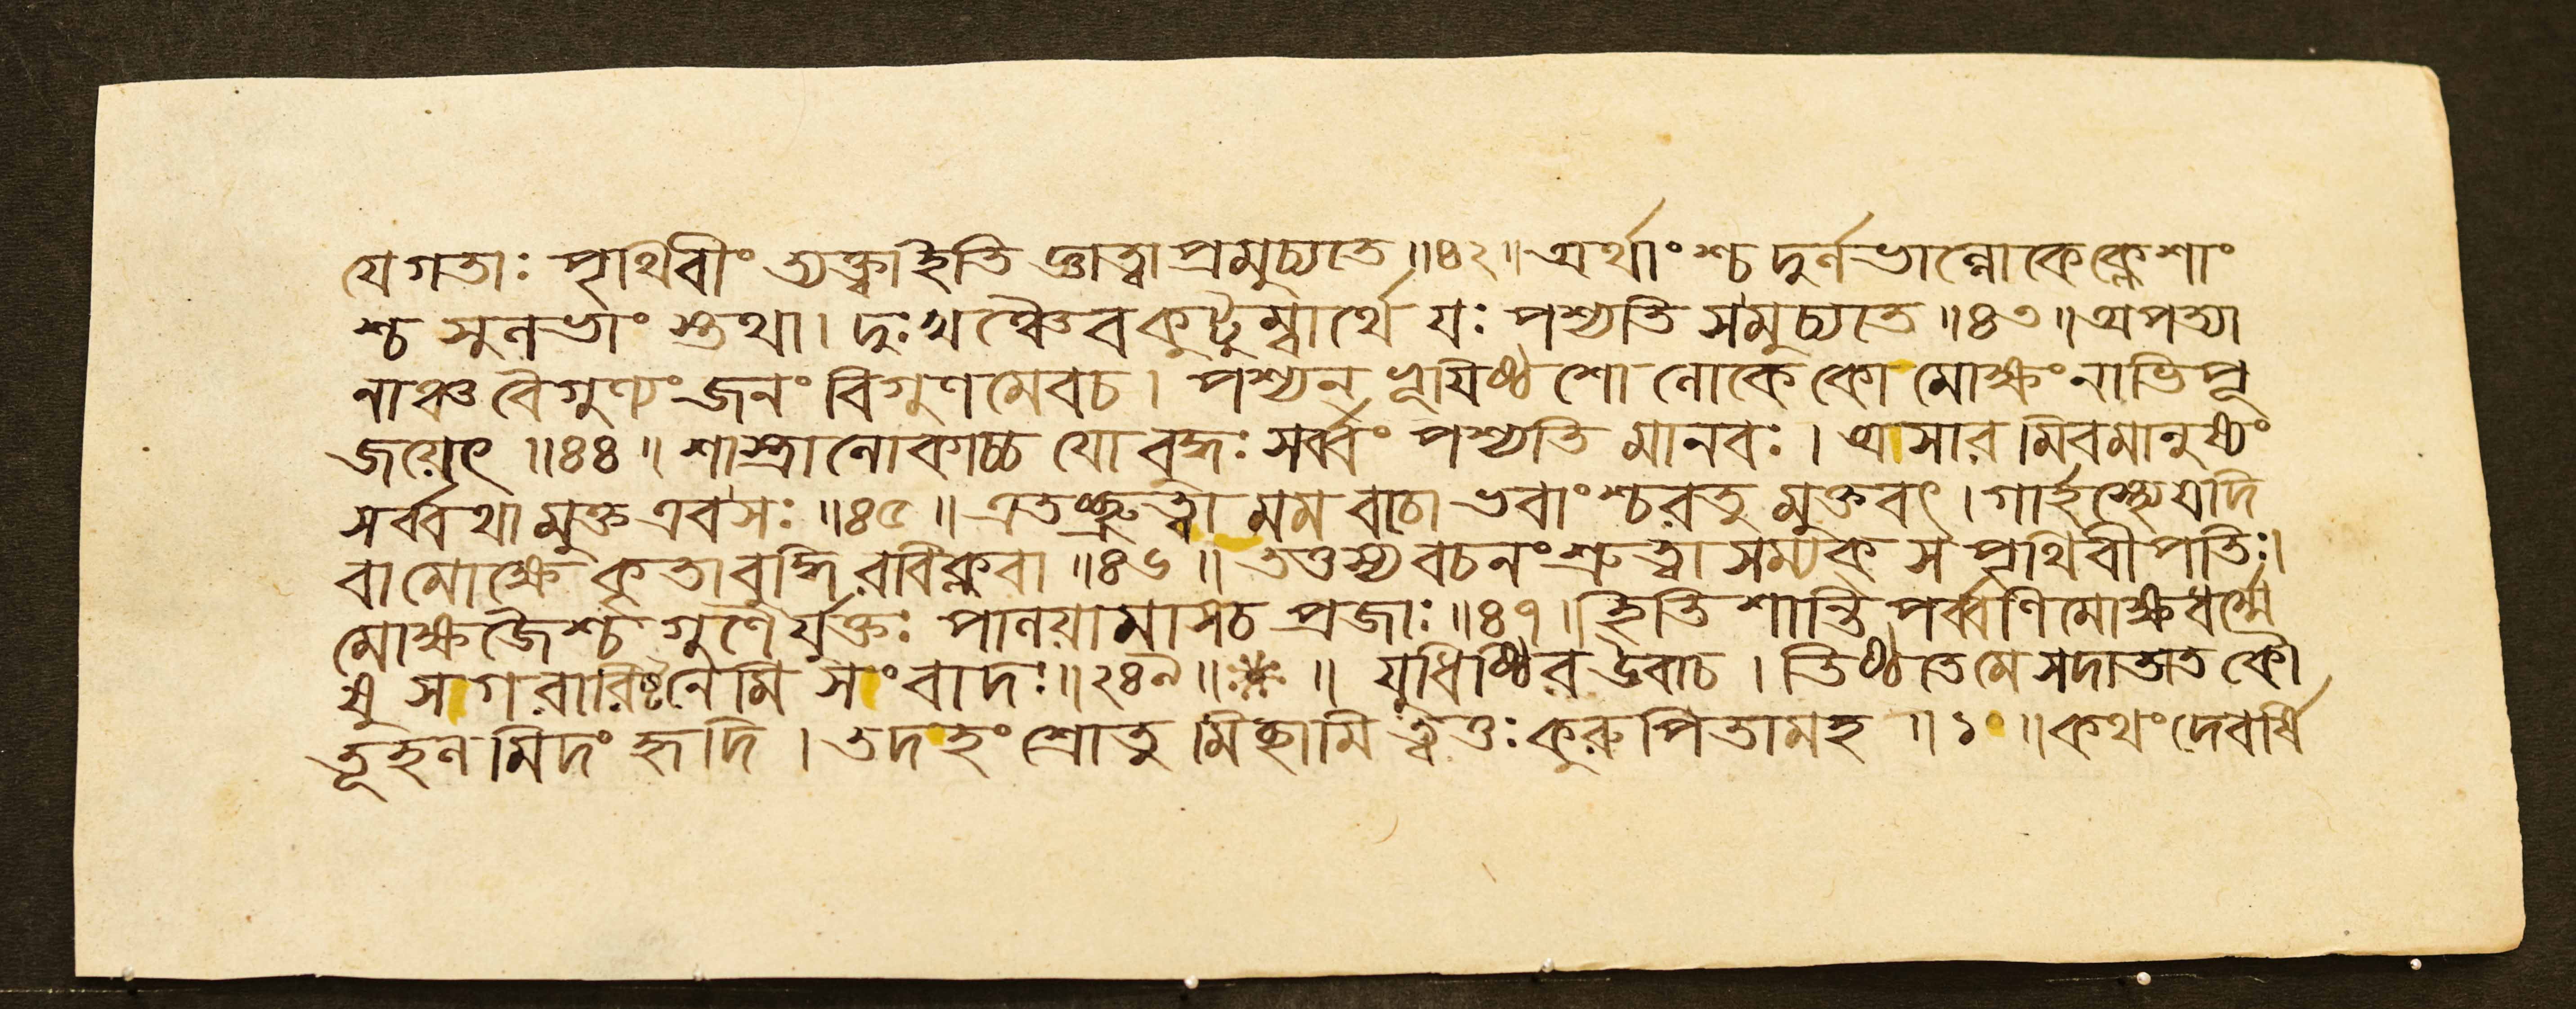 যে গতাঃ পৃথিবীং ত্যক্ত্বা ইতি জ্ঞাত্বা প্রমুচ্যতে ॥৪২॥ অর্থাংশ্চ দুর্লভাল্লোকে ক্লেশাং
শ্চ সুলভাংস্তথা। দুঃখঞ্চৈব কুটুম্বার্থে যঃ পশ্যতি স মুচ্যতে ॥৪৩॥ অপত্যা
নাঞ্চ বৈগুণ্যং জনং বিগুণমেব চ। পশ্যন্ ভূয়িষ্ঠশো লোকে কো মোক্ষং নাভিপূ
জয়েৎ ॥৪৪॥ শাস্ত্রাল্লোকাচ্চ যো বুদ্ধঃ সর্ব্বং পশ্যতি মানবঃ। অসারমিব মানুষ্যং
সর্ব্বথা মুক্ত এব সঃ ॥৪৫॥ এতচ্ছ্রুত্বা মম বচো ভবাংশ্চরতু মুক্তবৎ। গার্হস্থ্যে যদি
বা মোক্ষে কৃতা বুদ্ধিরবিক্লবা ॥৪৬॥ তত্তস্য বচনং শ্রুত্বা সম্যক্ স পৃথিবীপতিঃ।
মোক্ষজৈশ্চ গুণৈর্যুক্তঃ পালয়ামাস চ প্রজাঃ ॥৪৭॥ ইতি শান্তিপর্ব্বণি মোক্ষধর্ম্মে
ষু সাগরারিষ্টনেমিসংবাদঃ ॥২৪৯॥ ※ ॥ যুধিষ্ঠির উবাচ। তিষ্ঠতে মে সদা তাত কৌ
তূহলমিদং হৃদি। তদহং শ্রোতুমিচ্ছামি ত্বত্তঃ কুরুপিতামহ ॥১॥ কথং দেবর্ষি